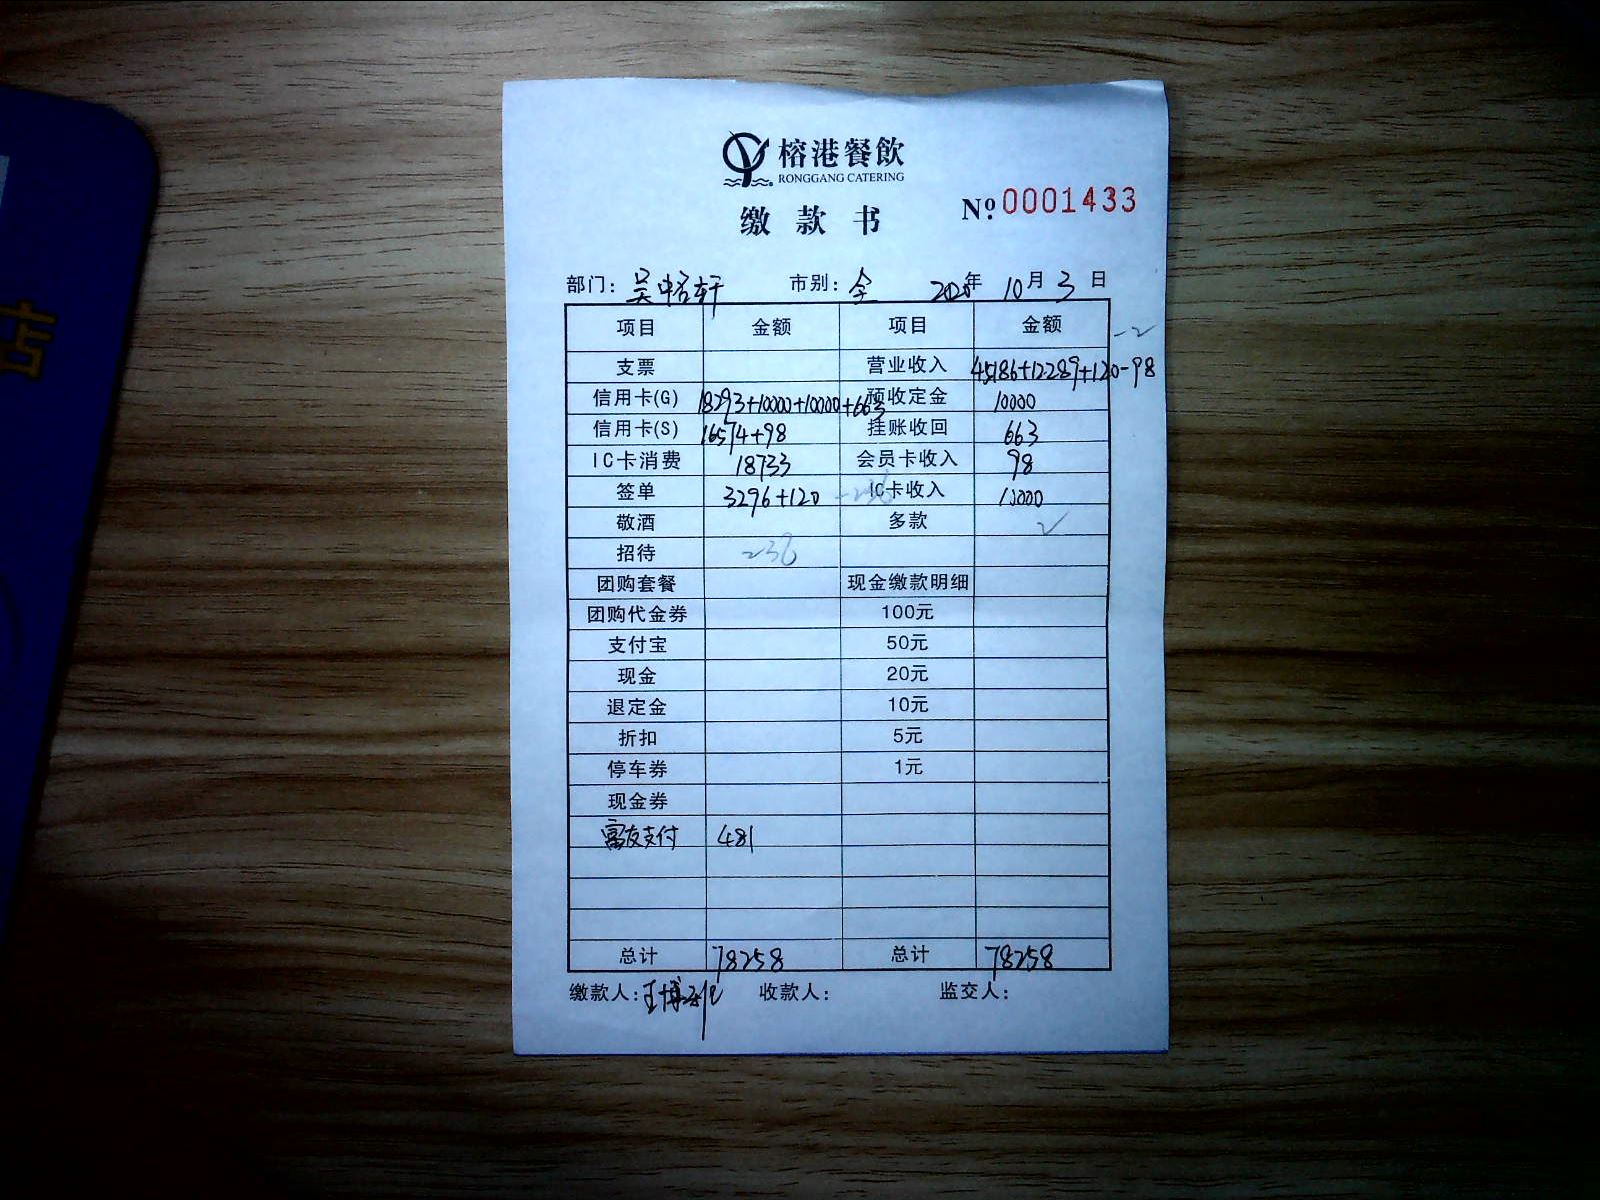 榕港餐飲
RONGGANG CATERING
缴款书 №0001433
部门：吴裕轩 市别：全 2020年10月3日
项目 金额 项目 金额 -2
支票 营业收入 45186+12289+120-98
信用卡(G) 18293+10000+10000+663 预收定金 10000
信用卡(S) 16574+98 挂账收回 663
IC卡消费 18733 会员卡收入 98
签单 3296+120 -236 IC卡收入 10000
敬酒 多款 2
招待 236
团购套餐 现金缴款明细
团购代金券 100元
支付宝 50元
现金 20元
退定金 10元
折扣 5元
停车券 1元
现金券
富友支付 481
总计 78258 总计 78258
缴款人：王博 收款人： 监交人：
占